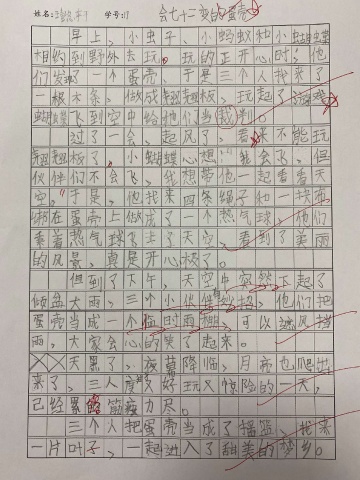 姓名： 学号：17 会七十二变的蛋壳
早上，小虫子、小蚂蚁和小蝴蝶
相约到野外去玩。玩的正开心时，他
们发现了一个蛋壳，于是三个人找来了
一根木条，做成翘翘板，玩起了游戏。
蝴蝶飞到空中给她们当裁判。
过了一会，起风了，看来不能玩
翘翘板了。小蝴蝶心想：“我会飞，但
伙伴们不会飞，我想带他一起看看天
空。”于是，他找来四条绳子和一块布
绑在蛋壳上做成了一个热气球，他们
乘着热气球飞上了天空，看到了美丽
的风景，真是开心极了。
但到了下午，天空中突然下起了
倾盆大雨，三个小伙伴有妙招，他们把
蛋壳当成一个临时雨棚，可以遮风挡
雨，大家会心的笑了起来。
天黑了，夜幕降临，月亮也爬出
来了，三人度了好玩又惊险的一天，
已经累的筋疲力尽。
三个人把蛋壳当成了摇篮，找来
一片叶子，一起进入了甜美的梦乡。